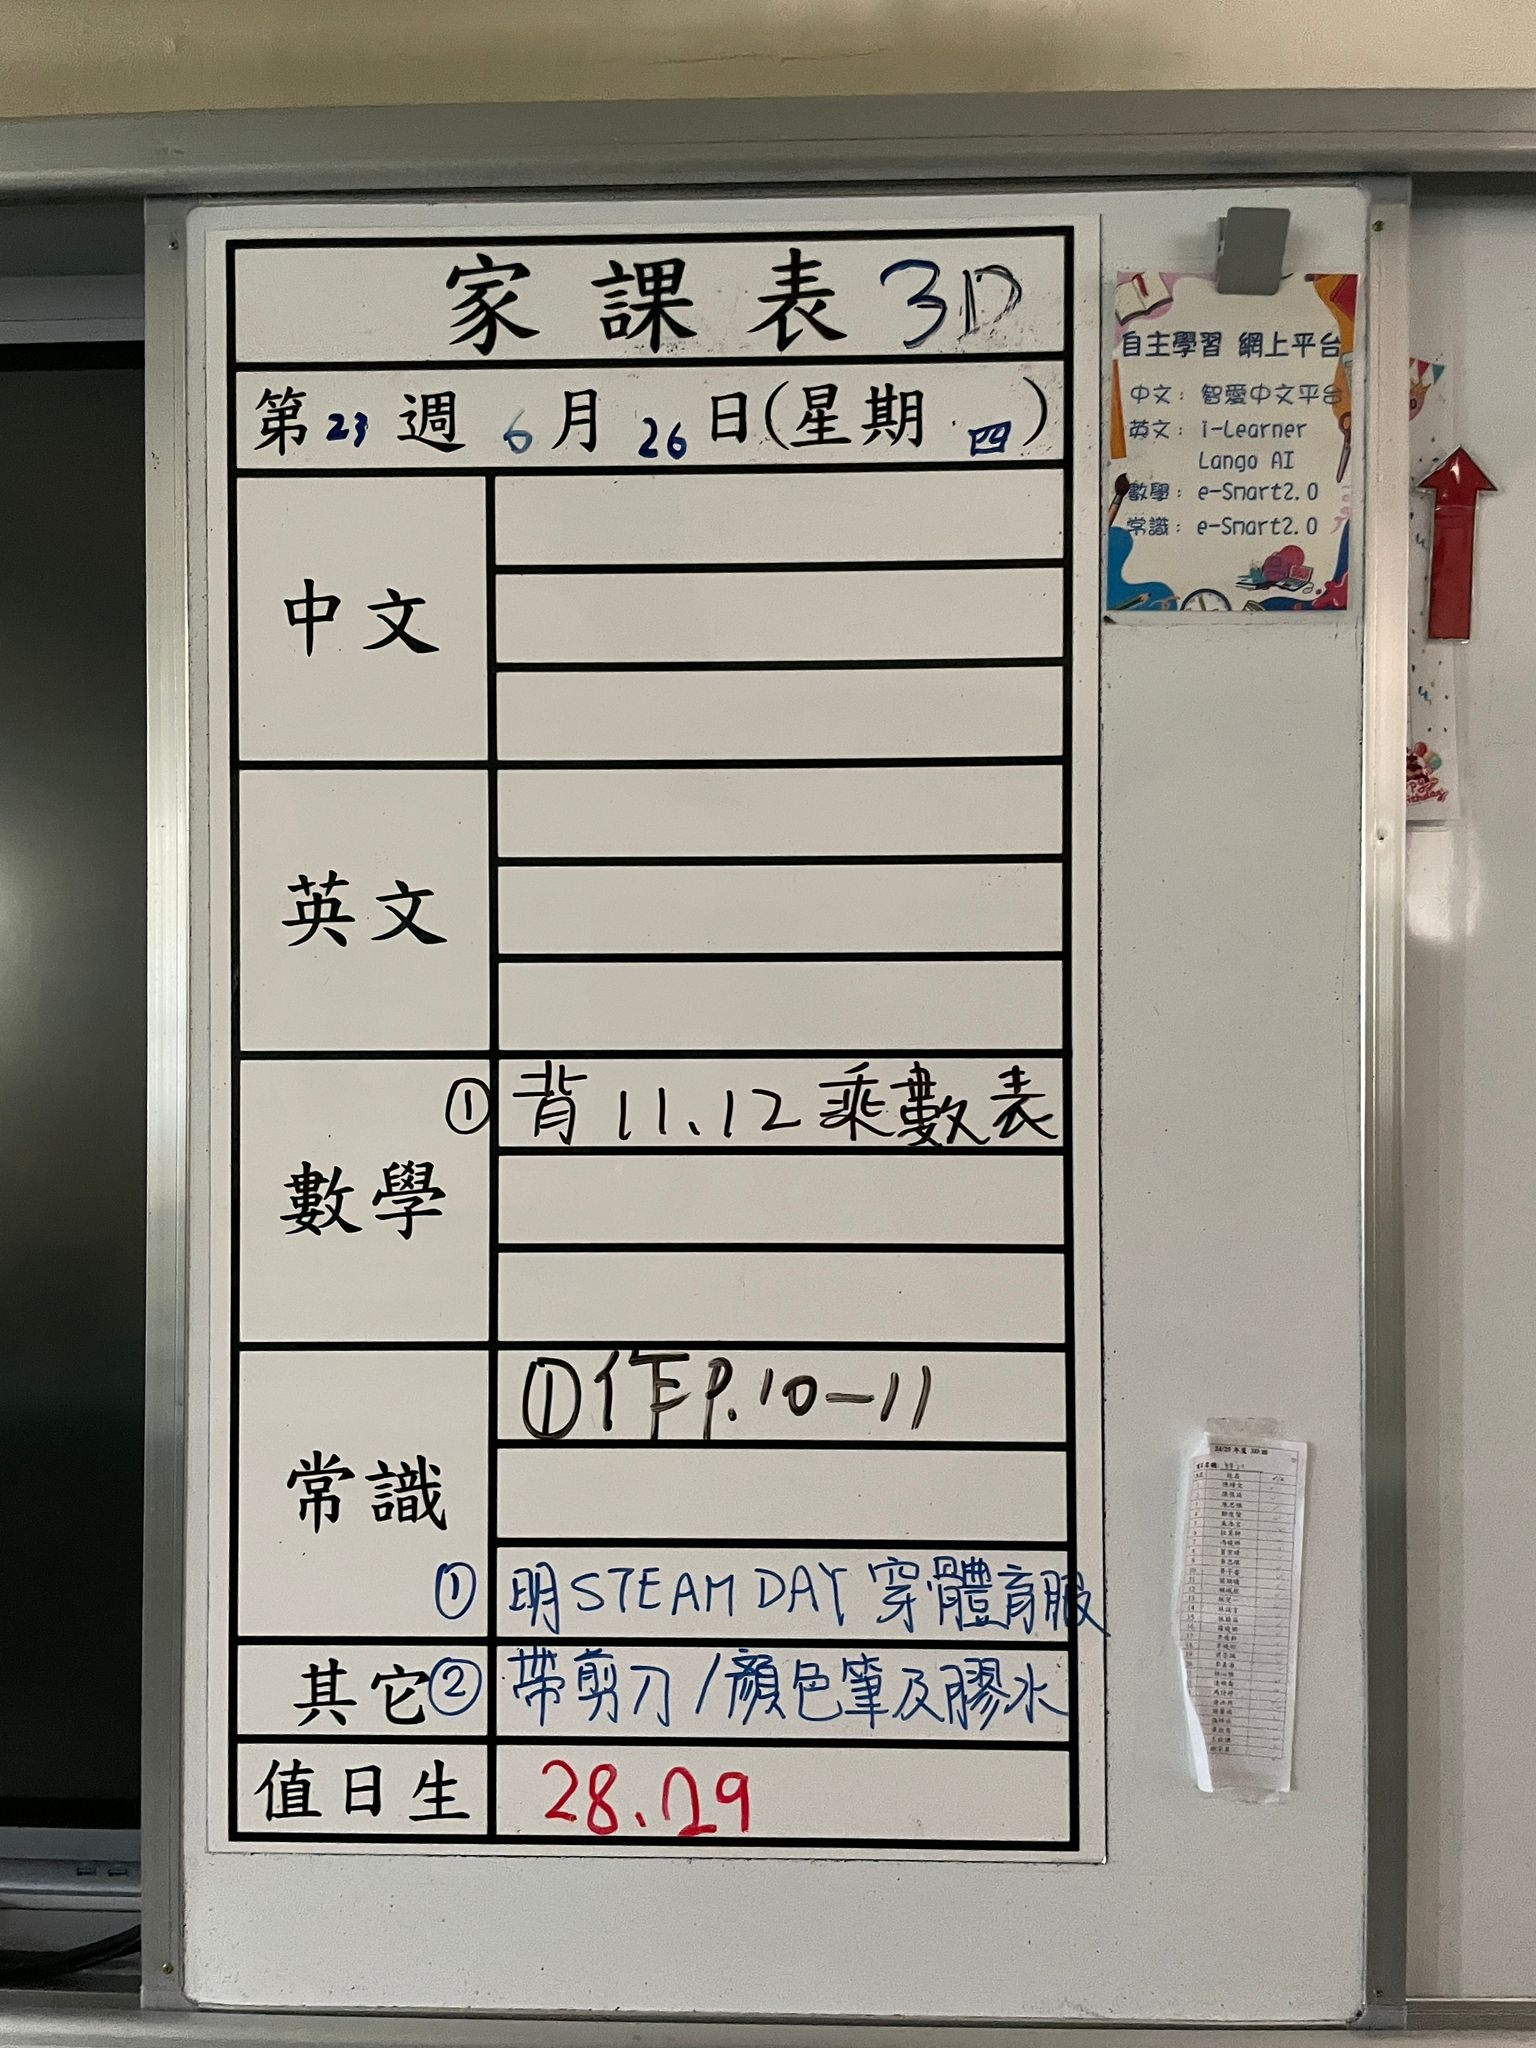 家課表 3D
第 23 週 6 月 26 日(星期 四)
中文
英文
數學
① 背 11、12 乘數表
常識
① 作 P.10-11
① 明 STEAM DAY 穿體育服
其它
② 帶剪刀/顏色筆及膠水
值日生
28、29
自主學習 網上平台
中文： 智愛中文平台
英文： i-Learner
Lango AI
數學： e-Smart2.0
常識： e-Smart2.0